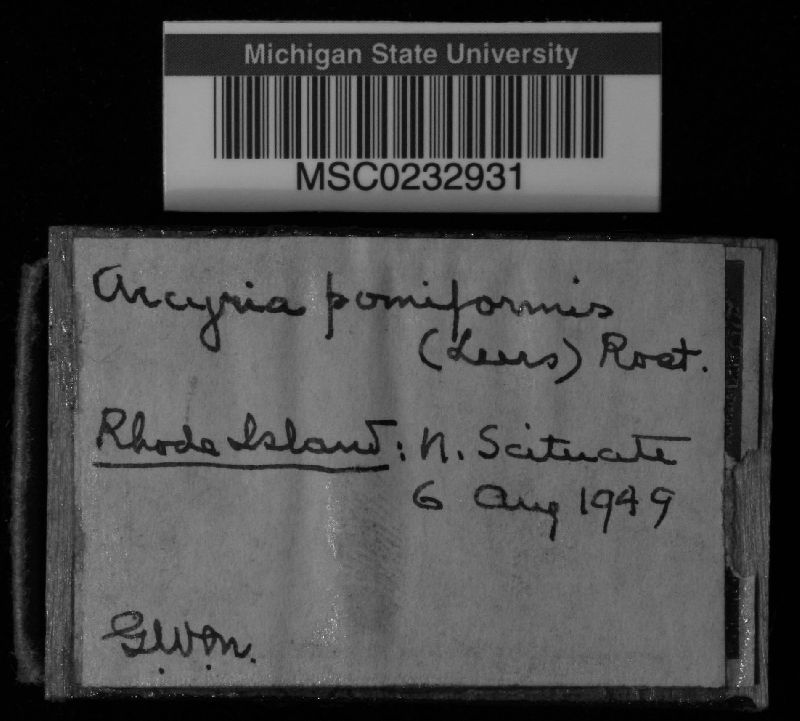 Michigan State University
MSC0232931
Arcyria pomiformis
(Leers) Rost.
Rhode Island: N. Scituate
6 Aug 1949
G.W.M.